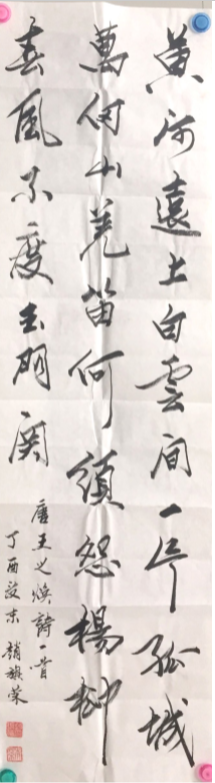 黄河遠上白雲間一片孤城
萬仞山羌笛何須怨楊柳
春風不度玉門関
唐王之煥詩一首
丁酉歲末 趙榮